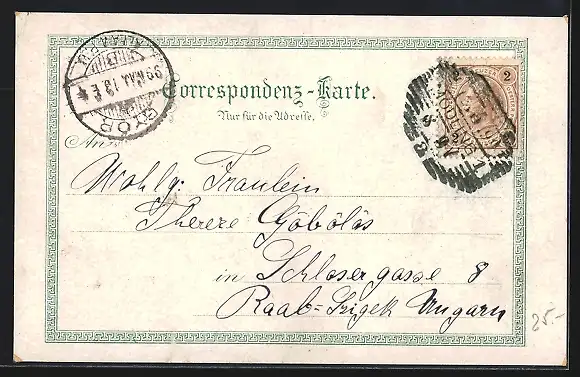 Correspondenz-Karte.
Nur für die Adresse.
An
Wohlg: Fraulein
Therese Göbölös
in Schlosergasse 8
Raab-Sziget Ungarn
GYŐR
2
25.-